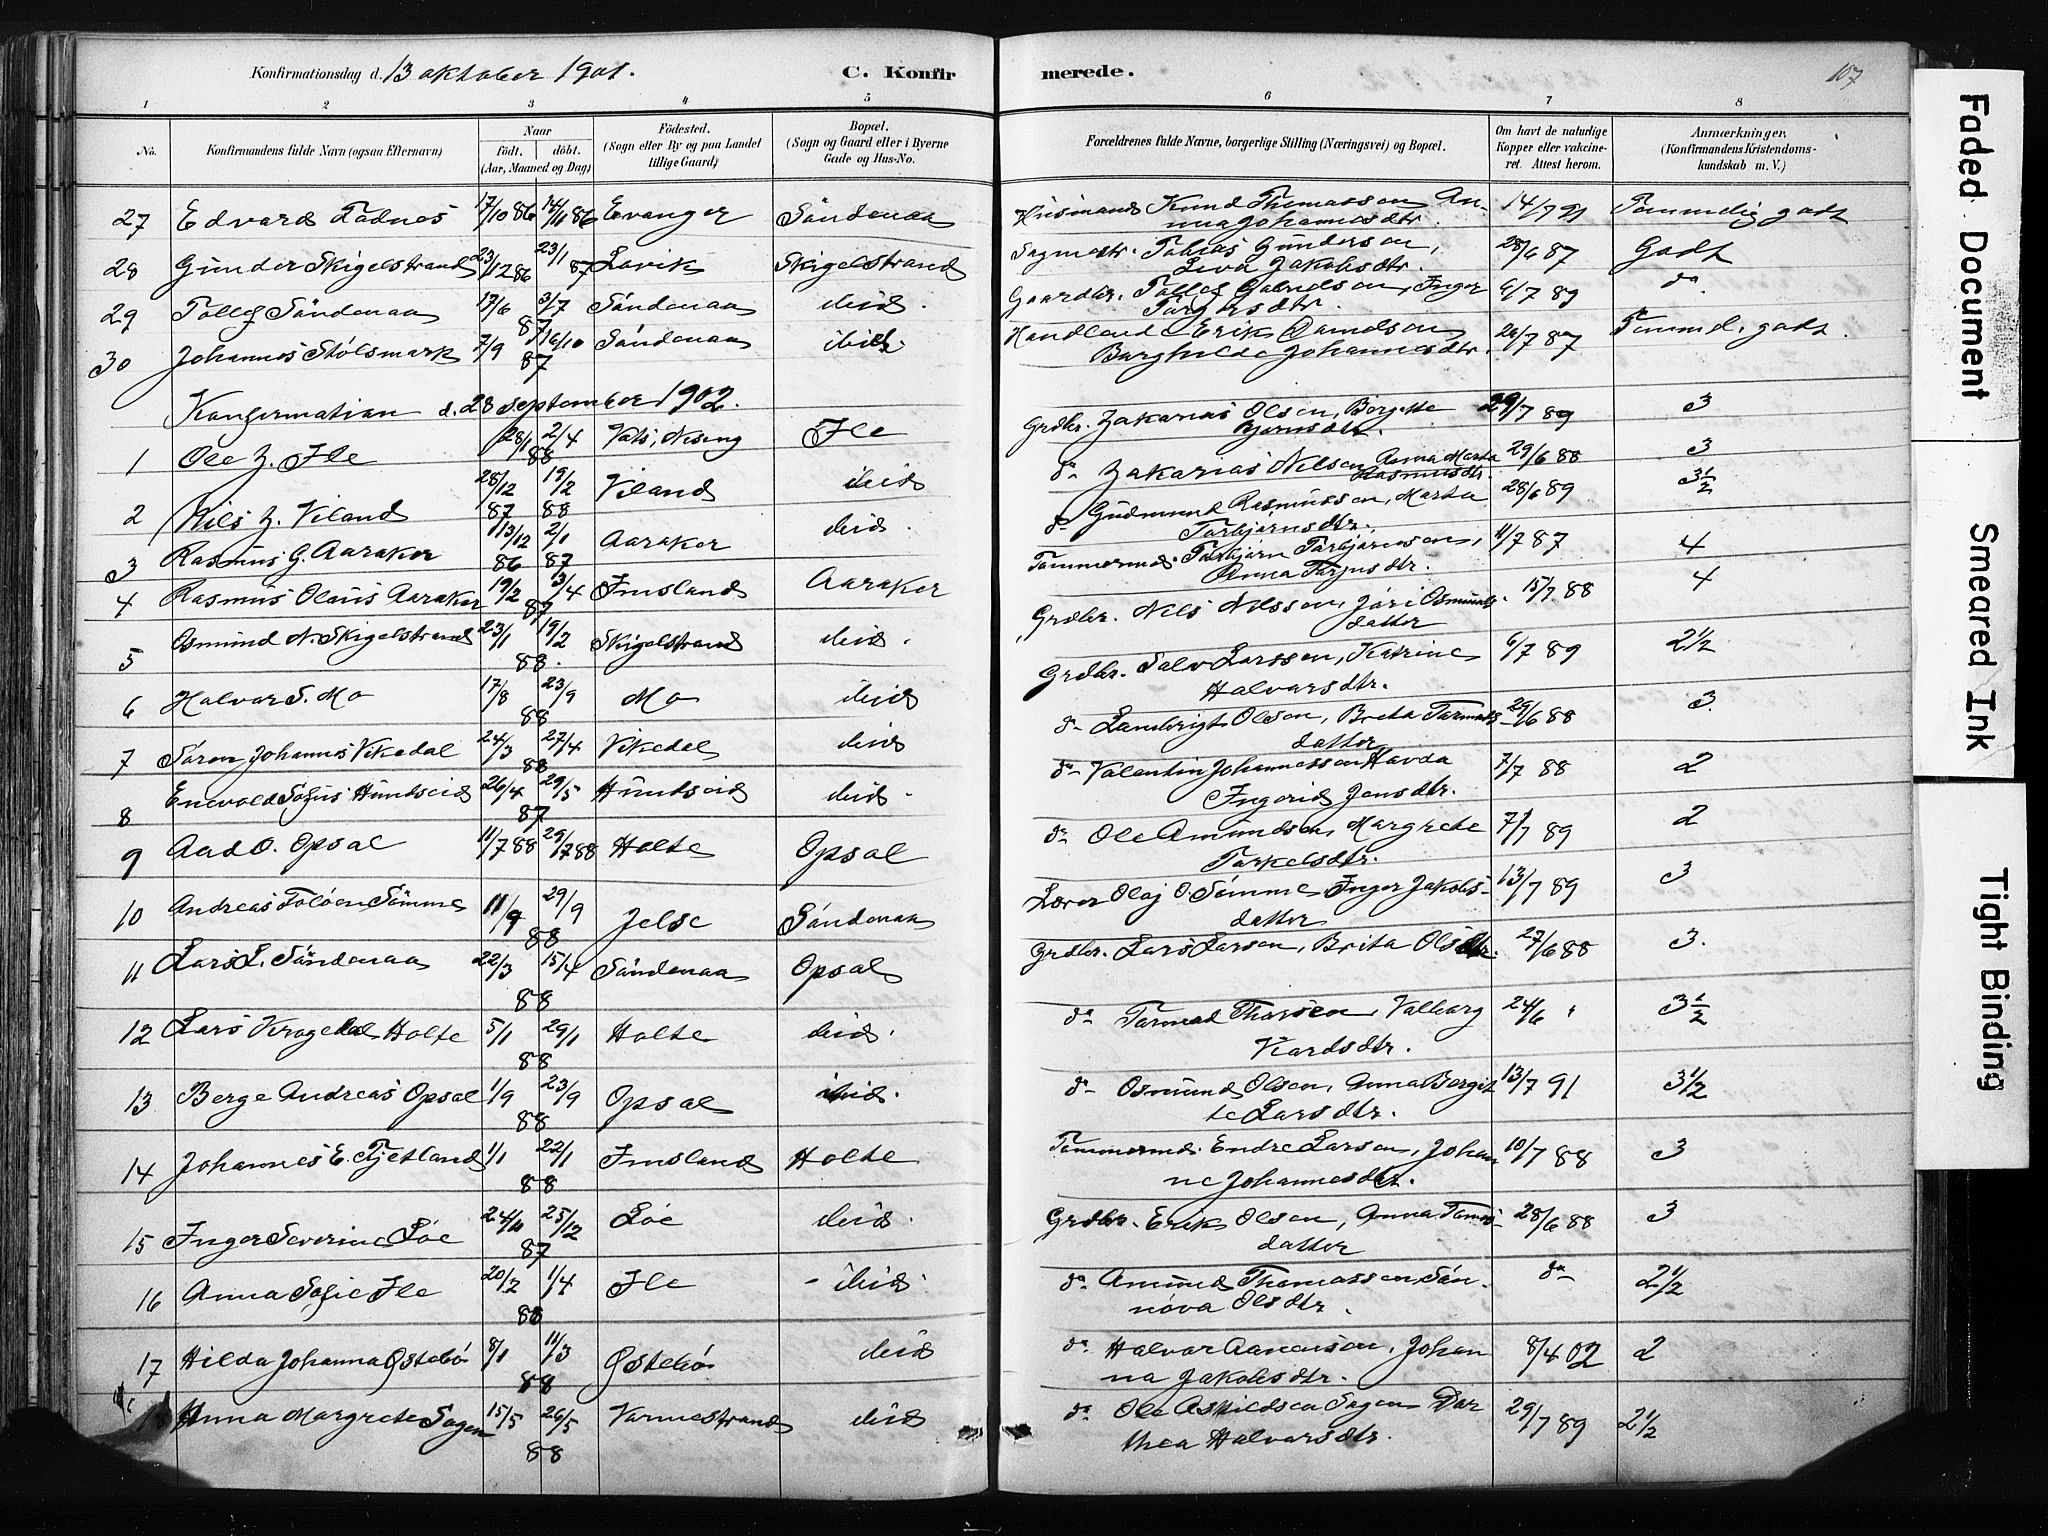 Konfirmationsdag d. 13 oktober 1901. C. Konfirmerede. 107
1 2 3 4 5 6 7 8
No. Konfirmandens fulde Navn (ogsaa Efternavn) Naar født. døbt. (Aar, Maaned og Dag) Fødested. (Sogn eller By og paa Landet tillige Gaard) Bopæl. (Sogn og Gaard eller i Byerne Gade og Hus-No. Forældrenes fulde Navne, borgerlige Stilling (Næringsvei) og Bopæl. Om havt de naturlige Kopper eller vakcineret. Attest herom. Anmærkninger. (Konfirmandens Kristendomskundskab m. V.)
27 Edvard Fadnes 17/10 86 14/11 86 Evanger Söndenaa Husmand Knud Thomassen Anna Johannesdtr. 14/7 91 Temmelig godt
28 Gunder Skigelstrand 23/12 86 23/1 87 Lavik Skigelstrand Sagmstr. Tobias Gunderson, Siva Jakobsdtr. 28/6 87 Godt
29 Tollef Söndenaa 17/6 3/7 87 Söndenaa ibid. Gaardbr. Tollef Gabrielsen, Inger Torgersdtr. 6/7 89 do
30 Johannes Stølsmark 7/9 16/10 87 Söndenaa ibid. Handlende Erik Danielsen Borghilde Johannesdtr. 26/7 87 Temmel. godt.
Konfirmation d. 28 september 1902.
1 Ole Z. Ile 28/1 2/4 88 Vats, Nesing Ile Grdbr. Zakarias Olsen, Bergitte Bjørnsdtr. 29/7 89 3
2 Nils Z. Viland 28/12 87 19/2 88 Viland ibid do Zakarias Nilsen Anna Marta Rasmusdtr. 29/6 88 3
3 Rasmus G. Aaraker 13/12 86 2/1 87 Aaraker ibid. do Gudmund Rasmussen, Marta Torbjørnsdtr. 28/6 89 3½
4 Rasmus Olaus Aaraker 19/2 13/4 87 Imsland Aaraker Tømmermd. Torbjørn Torbjørnsen, Anna Torjusdtr. 11/7 87 4
5 Osmund N. Skigelstrand 23/1 19/2 88. Skigelstrand ibid. Grdbr. Nils Nilssen, Jóri Osmundsdatter 15/7 88 4
6 Halvor S. Mo 17/8 23/9 88 Mo ibid Grdbr. Salve Larssen, Katrine Halvorsdtr. 6/7 89 2½
7 Søren Johannes Vikedal 24/3 27/4 88 Vikedal ibid do Lambrigt Olsen, Brita Tormodsdatter 29/6 88 3.
8 Enevold Sofus Hundseid 26/4 29/5 87 Hundseid ibid. do Valentin Johannessen Havda Ingerid Jensdtr. 7/7 88 2
9 Aad O. Opsal 11/7 88 29/7 88 Holte Opsal do Ole Amundsen, Margrete Torkelsdtr. 7/7 89 2
10 Andreas Foløen Sömme 11/9 29/9 88 Jelse Söndenaa Lærer Olaj O. Sömme Inger Jakobsdatter 13/7 89 3
11 Lars L. Söndenaa 22/3 15/4 88 Söndenaa Opsal Grdbr. Lars Larsen, Brita Olsdtr. 27/6 88 3.
12 Lars Kragedal Holte 5/1 29/1 88 Holte ibid. do Tormod Thorsen, Valborg Viardsdtr. 24/6 " 3½
13 Berge Andreas Opsal 1/9 23/9 88 Opsal ibid. do Osmund Olsen, Anna Bergitte Larsdtr. 13/7 91 3½
14 Johannes E. Fjetland 1/1 22/1 88 Imsland Holte Tømmermd. Endre Larsen, Johanne Johannesdtr. 10/7 88 3
15 Inger Severine Löe 24/11 25/12 87 Löe ibid. Grdbr. Erik Olsen, Anna Tomasdatter 28/6 88 3
16 Anna Sofie Ile 20/2 1/4 88 Ile - ibid. do Amund Thomassen, Sönnöva Olsdtr. do 2½
17 Hilda Johanna Østebø 8/1 11/3 88 Østebø ibid do Halvor Aanensen, Johanna Jakobsdtr. 8/4 02 2
18 Anna Margrete Sagen 15/5 26/5 88 Varmestrand ibid do Ole Askildsen Sagen Dorthea Halvorsdtr. 29/7 89 2½
Faded Document
Smeared Ink
Tight Binding